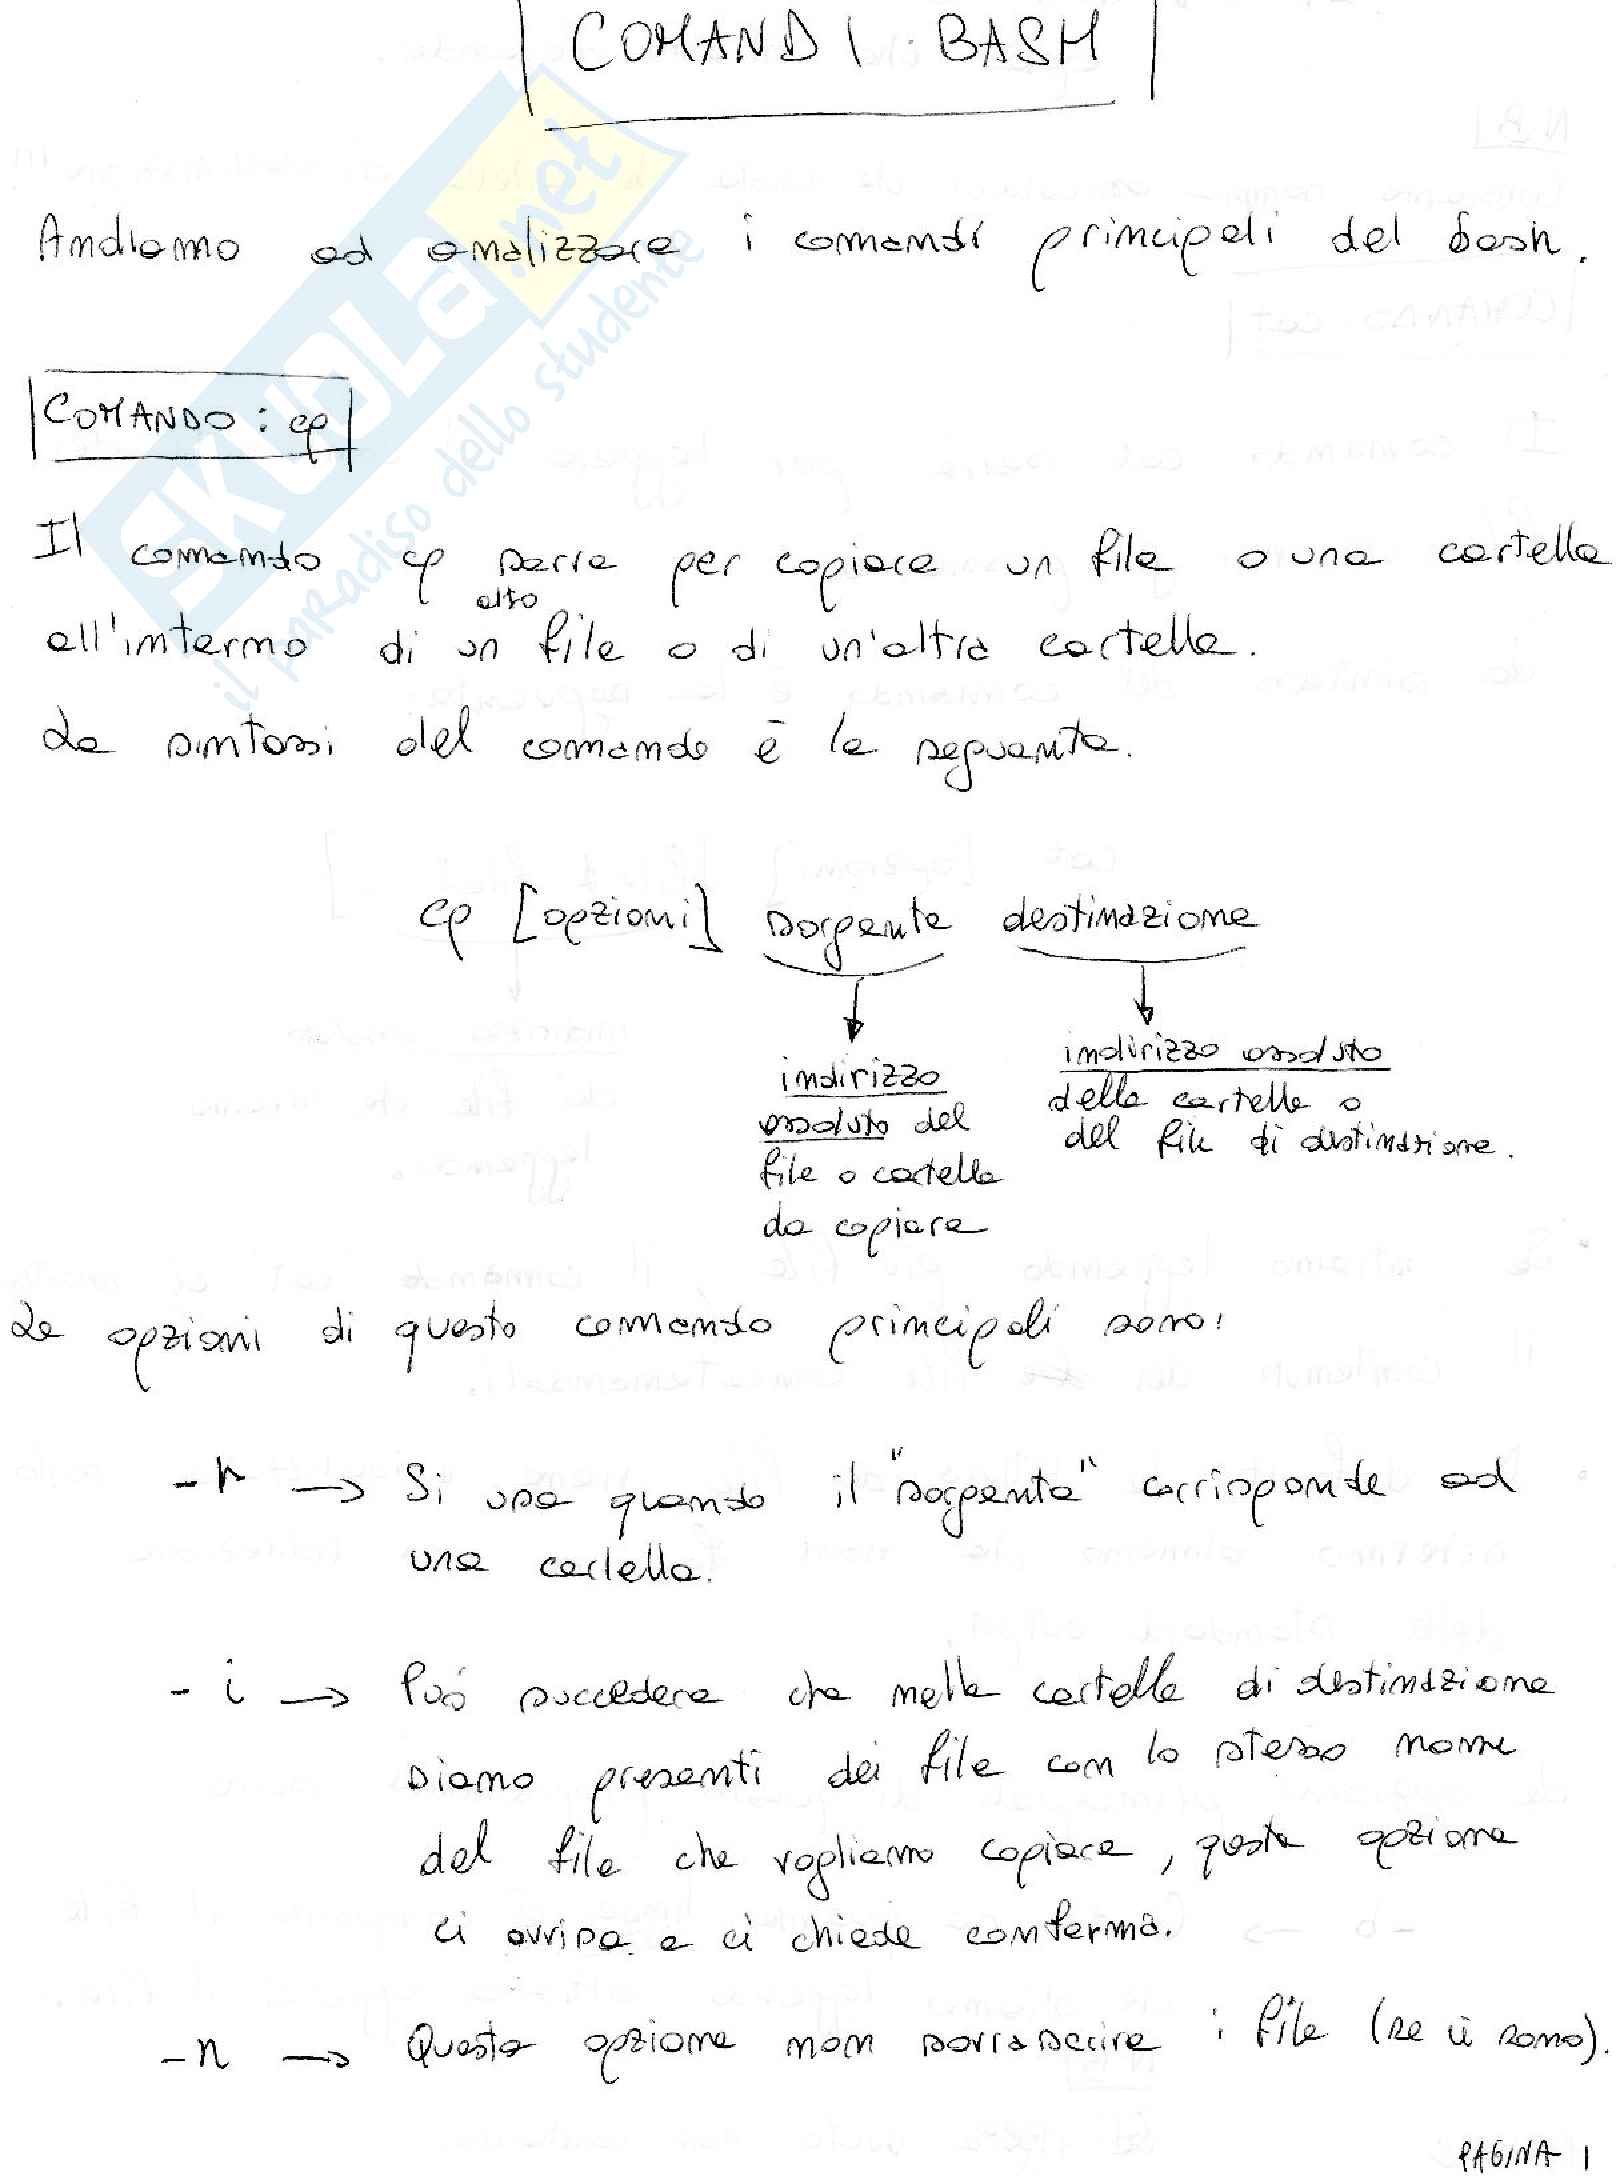 COMANDI BASH
Andiamo ad analizzare i comandi principali del bash.
COMANDO: cp
Il comando cp serve per copiare un file o una cartella
altro
all'interno di un file o di un'altra cartella.
La sintassi del comando è la seguente.
cp [opzioni] sorgente destinazione
indirizzo
assoluto del
file o cartella
da copiare
indirizzo assoluto
della cartella o
del file di destinazione.
Le opzioni di questo comando principali sono:
-r → Si usa quando il "sorgente" corrisponde ad
una cartella.
-i → Può succedere che nella cartella di destinazione
siano presenti dei file con lo stesso nome
del file che vogliamo copiare, questa opzione
ci avvisa e ci chiede conferma.
-n → Questa opzione non sovrascrive i file (se ci sono).
PAGINA 1
SKUOLA.net
il paradiso dello studente